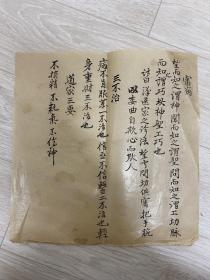 望而知之謂神聞而知之謂聖問而知之謂工切脉
而知謂巧故神聖工巧也
家之診法望聞問切俱實把手腕
委曲自欺心而欺人
三不治
病不自服一不治也信巫不信醫二不治也輕
身重財三不治也
道家三要
不損精 不耗氣 不傷神